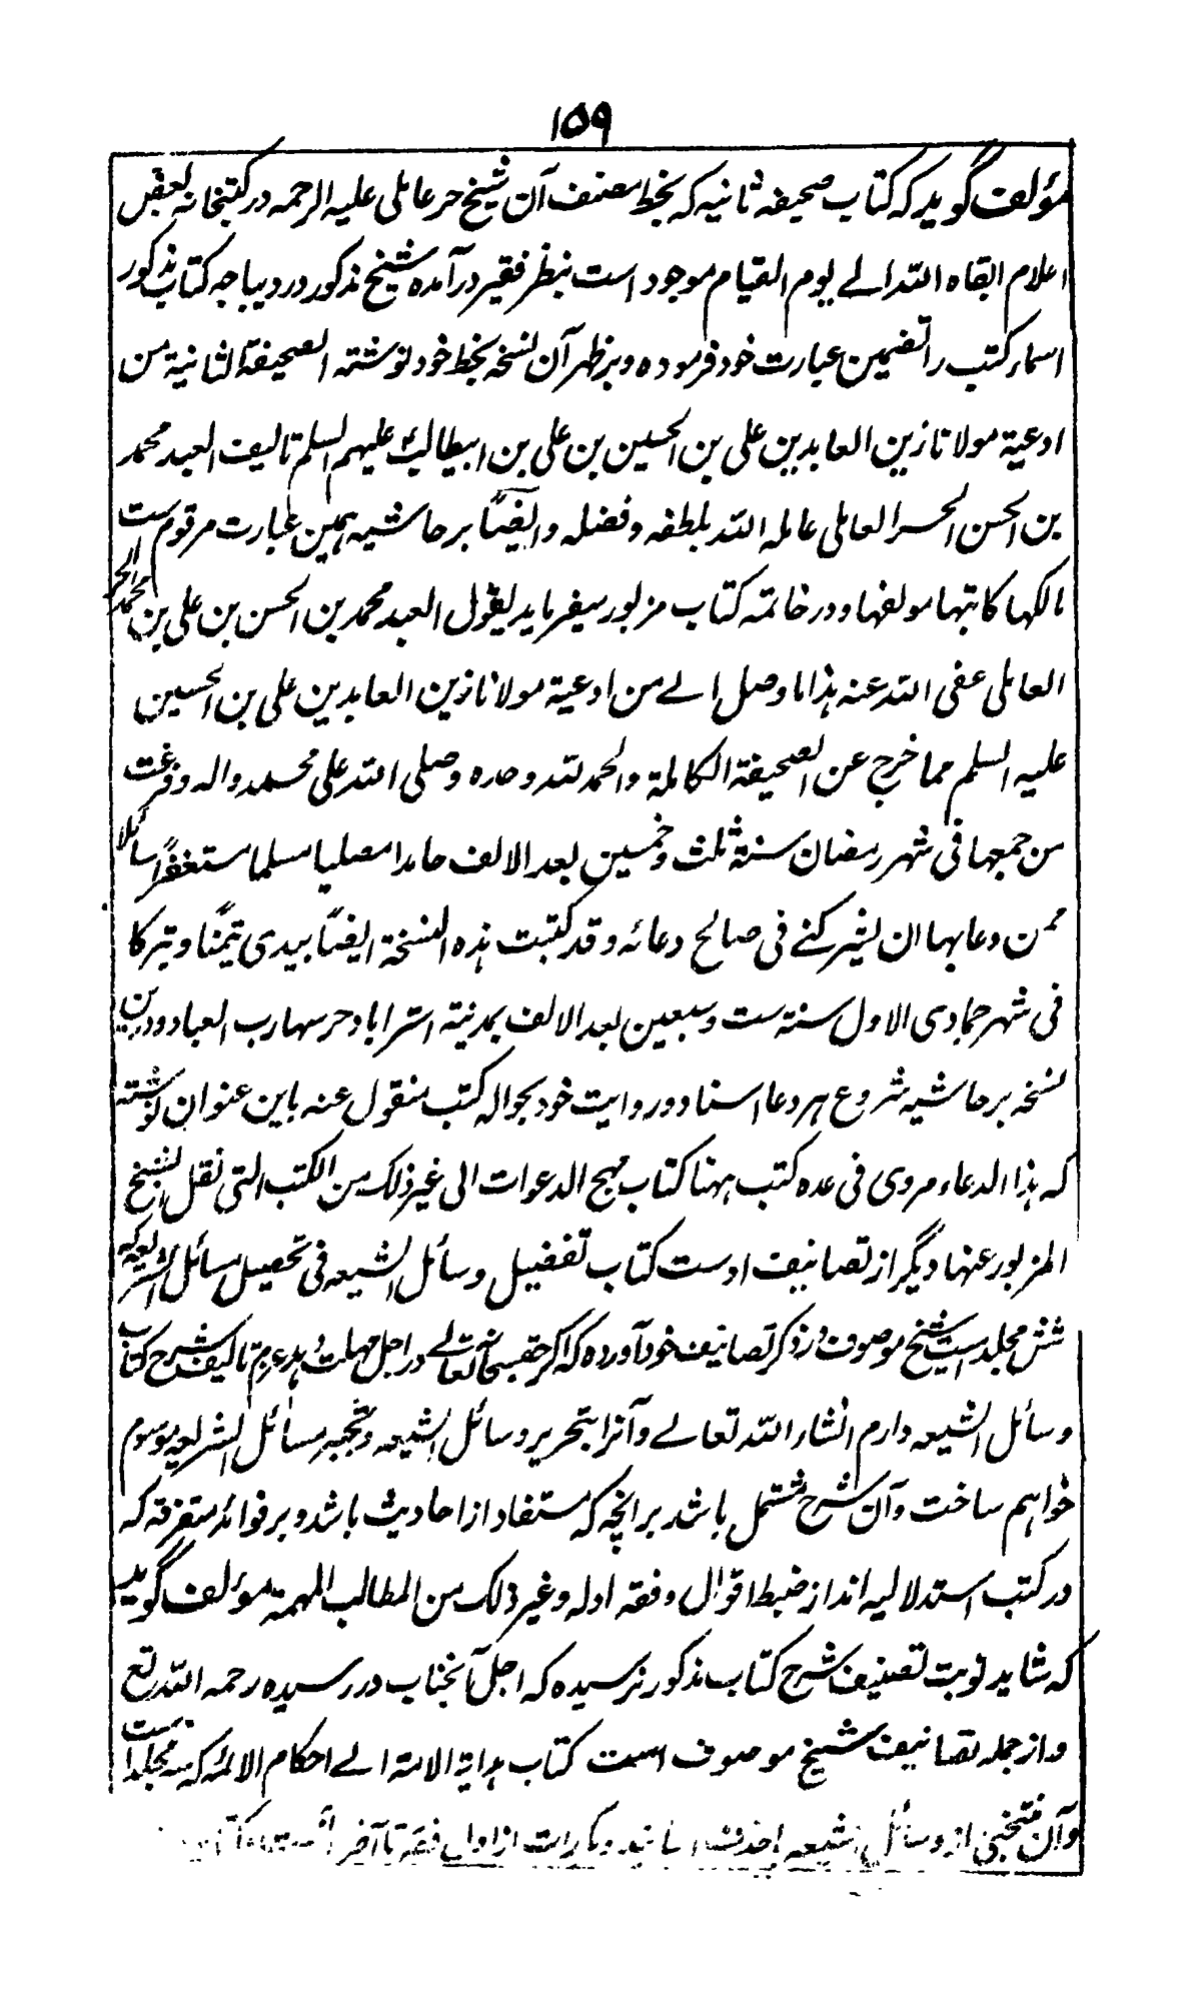 ۱۵۹
مؤلف گوید که کتاب صحیفه ثانیه که بخط مصنف آن شیخ حر عاملی علیه الرحمه در کتبخانه بعض
اعلام ابقاه الله الے یوم القیام موجود است بنظر فقیر در آمده شیخ مذکور در دیباجه کتاب مذکور
اسماء کتب را تضمین عبارت خود فرموده و بر ظهر آن نسخه بخط خود نوشته الصحیفة الثانیة من
ادعیة مولانا زین العابدین علی بن الحسین بن علی بن ابیطالب علیهم السلم تالیف العبد محمد
بن الحسن الحر العاملی عامله الله بلطفه و فضله و ایضًا بر حاشیه همین عبارت مرقوم است
مالکها کاتبها مولفها و در خاتمه کتاب مزبور میفرماید یقول العبد محمد بن الحسن بن علی بن محمد الحر
العاملی عفی الله عنه هذا ما وصل الے من ادعیة مولانا زین العابدین علی بن الحسین
علیه السلم مما خرج عن الصحیفة الکاملة والحمد لله وحده وصلی الله علی محمد واله وفرغت
من جمعها فی شهر رمضان سنة ثلث وخمسین بعد الالف حامدا مصلیا مسلما مستغفرًا سائلا
ممن دعا بها ان یشرکنے فی صالح دعائه وقد کتبت هذه النسخة ایضًا بیدی تیمّنًا وتبرکا
فی شهر جمادی الاول سنة ست وسبعین بعد الالف بمدینة استراباد حرسها رب العباد و درین
نسخه بر حاشیه شروع هر دعا اسناد و روایت خود بحواله کتب منقول عنه باین عنوان نوشته
که هذا الدعاء مروی فی عده کتب منها کتاب مهج الدعوات الی غیر ذلک من الکتب التی نقل الشیخ
المزبور عنها دیگر از تصانیف اوست کتاب تفصیل وسائل الشیعه فی تحصیل مسائل الشریعه که
شش مجلد است شیخ موصوف در ذکر تصانیف خود آورده که اگر حقسبحانه تعالے در اجل مهلت بدهد عزم تالیف شرح کتاب
وسائل الشیعه دارم انشاء الله تعالے و آنرا بتحریر وسائل الشیعه و تحبیر مسائل الشریعه موسوم
خواهم ساخت و آن شرح مشتمل باشد بر انچه که مستفاد از احادیث باشد و بر فوائد متفرقه که
در کتب استدلالیه اند از ضبط اقوال و فقه ادله و غیر ذلک من المطالب المهمة مؤلف گوید
که شاید نوبت تصنیف شرح کتاب مذکور نرسیده که اجل آنجناب در رسیده رحمه الله تع
و از جمله تصانیف شیخ موصوف است کتاب هدایة الامة الے احکام الائمه که سه مجلد است
وآن منتخبی از وسائل الشیعه از اول فقه تا آخر